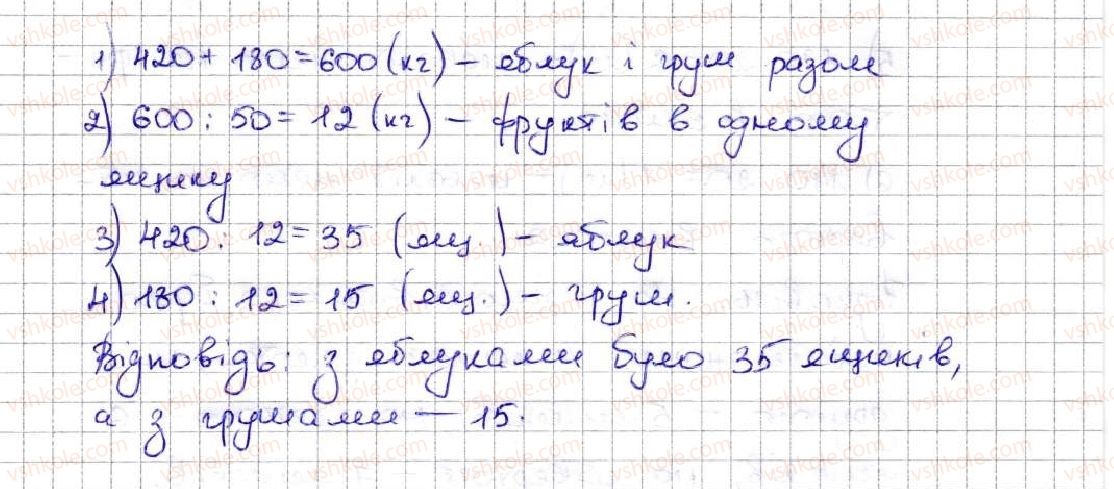 1) 420 + 180 = 600 (кг) – яблук і груш разом
2) 600 : 50 = 12 (кг) – фруктів в одному
ящику
3) 420 : 12 = 35 (ящ.) – яблук
4) 180 : 12 = 15 (ящ.) – груш.
Відповідь: з яблуками було 35 ящиків,
а з грушами — 15.